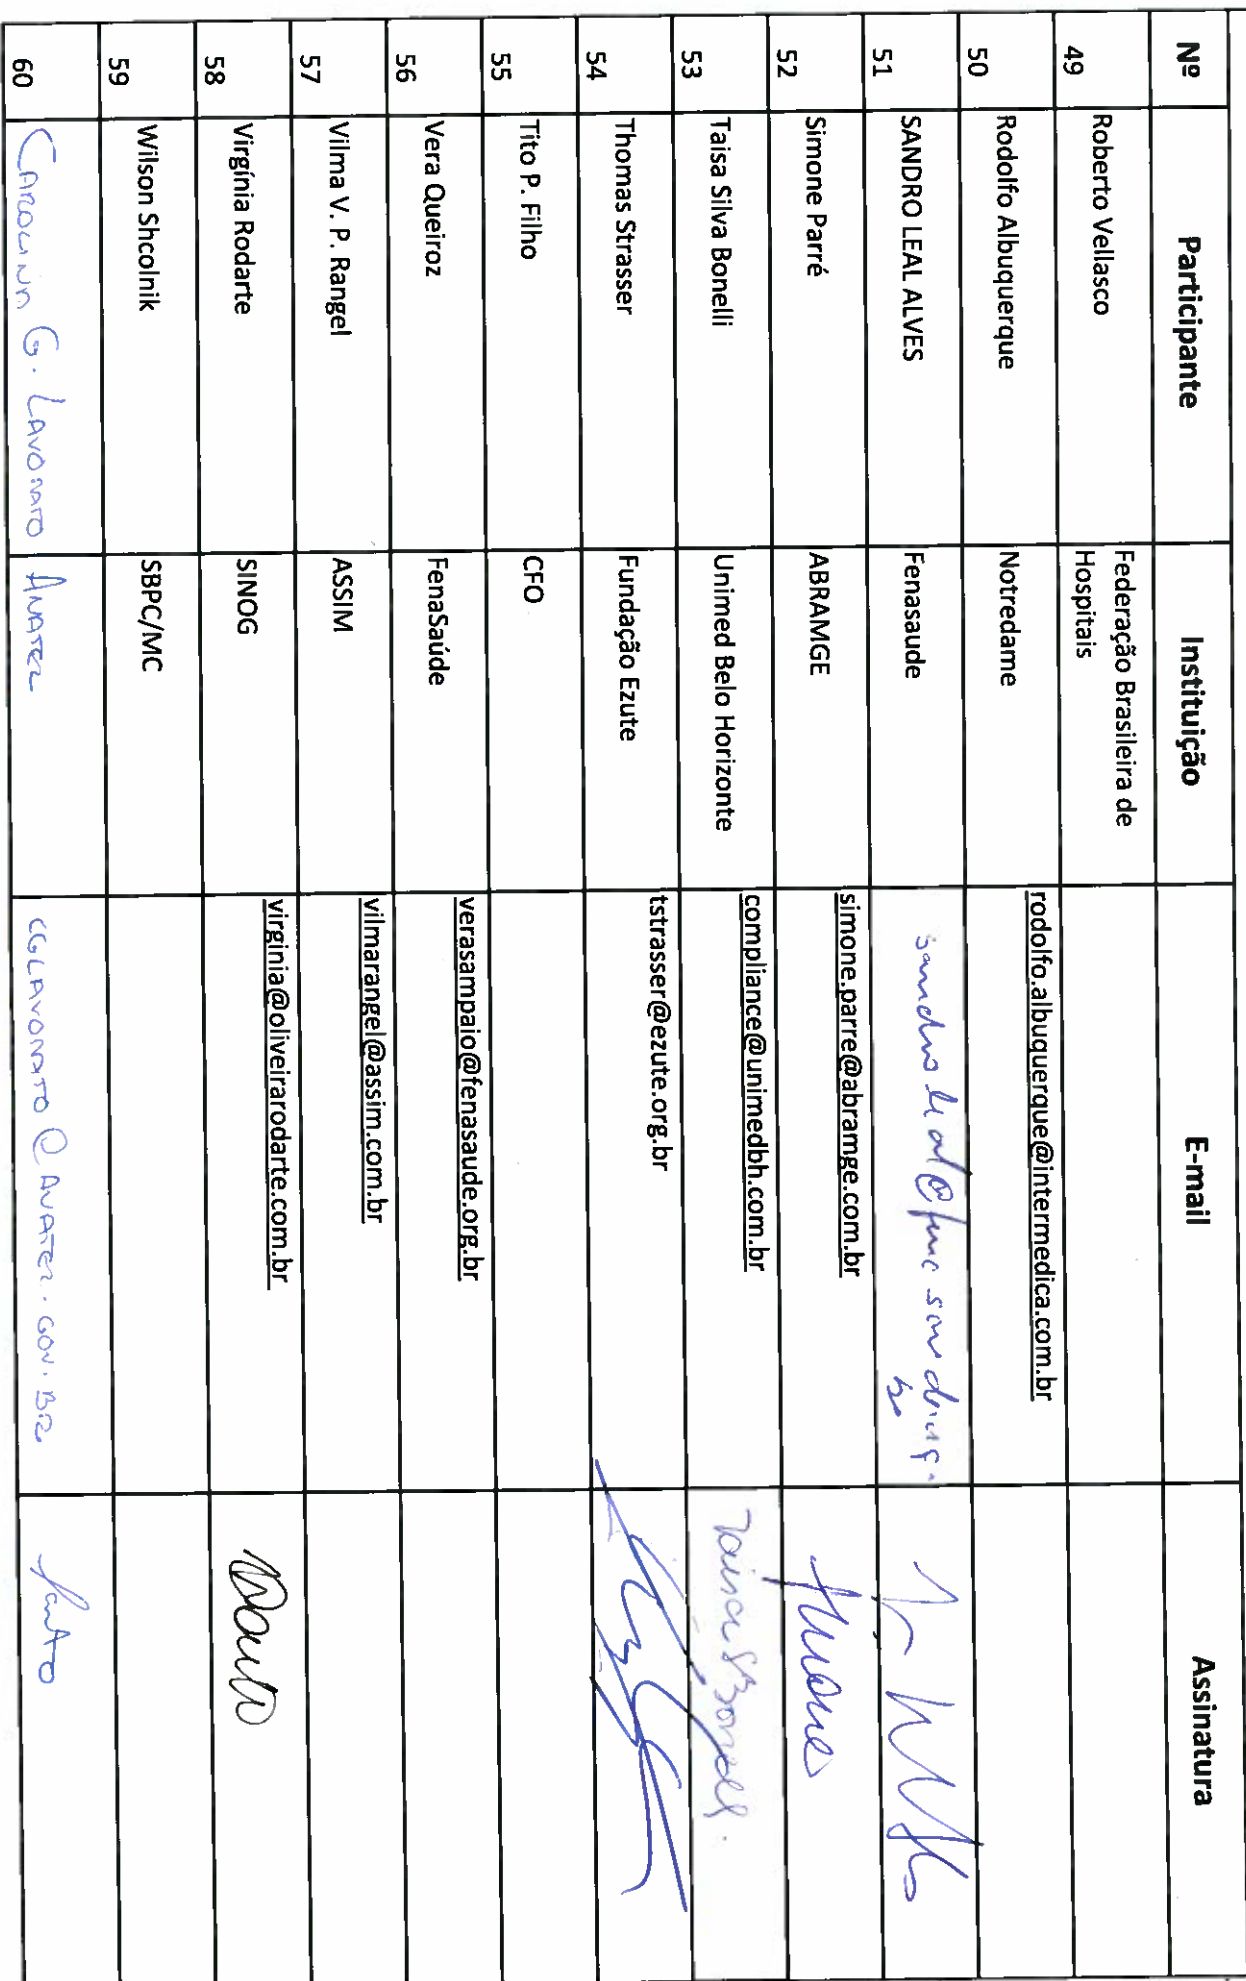 Nº Participante Instituição E-mail Assinatura
49 Roberto Vellasco Federação Brasileira de
Hospitais
50 Rodolfo Albuquerque Notredame rodolfo.albuquerque@intermedica.com.br
51 SANDRO LEAL ALVES Fenasaude
52 Simone Parré ABRAMGE simone.parre@abramge.com.br Simone
53 Taisa Silva Bonelli Unimed Belo Horizonte compliance@unimedbh.com.br Taisa SBonelli
54 Thomas Strasser Fundação Ezute tstrasser@ezute.org.br
55 Tito P. Filho CFO
56 Vera Queiroz FenaSaúde verasampaio@fenasaude.org.br
57 Vilma V. P. Rangel ASSIM vilmarangel@assim.com.br
58 Virgínia Rodarte SINOG virginia@oliveirarodarte.com.br
59 Wilson Shcolnik SBPC/MC
60 CAROLINA G. LAVORATO ANATER CGLAVORATO@ANATER.GOV.BR